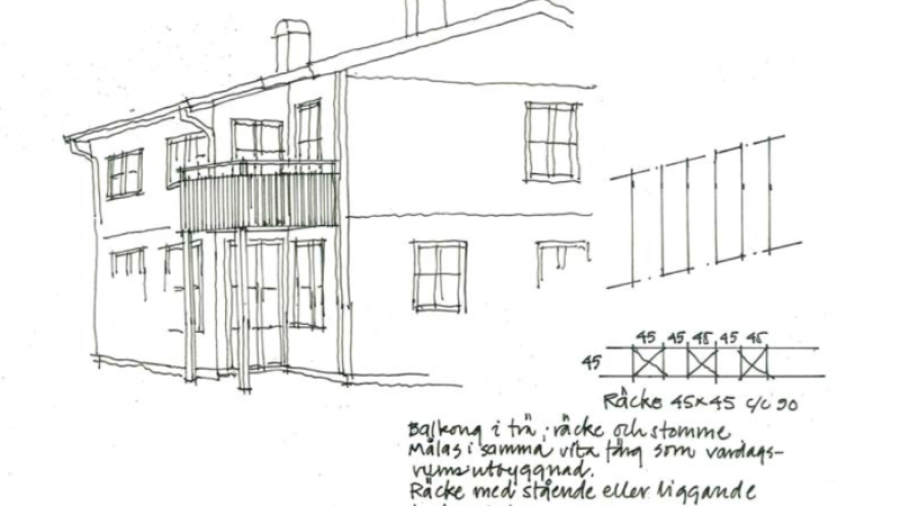 45 45 45 45 45
45
Räcke 45×45 c/c 90
Balkong i trä, räcke och stomme
målas i samma vita färg som vardags-
rumsutbyggnad.
Räcke med stående eller liggande